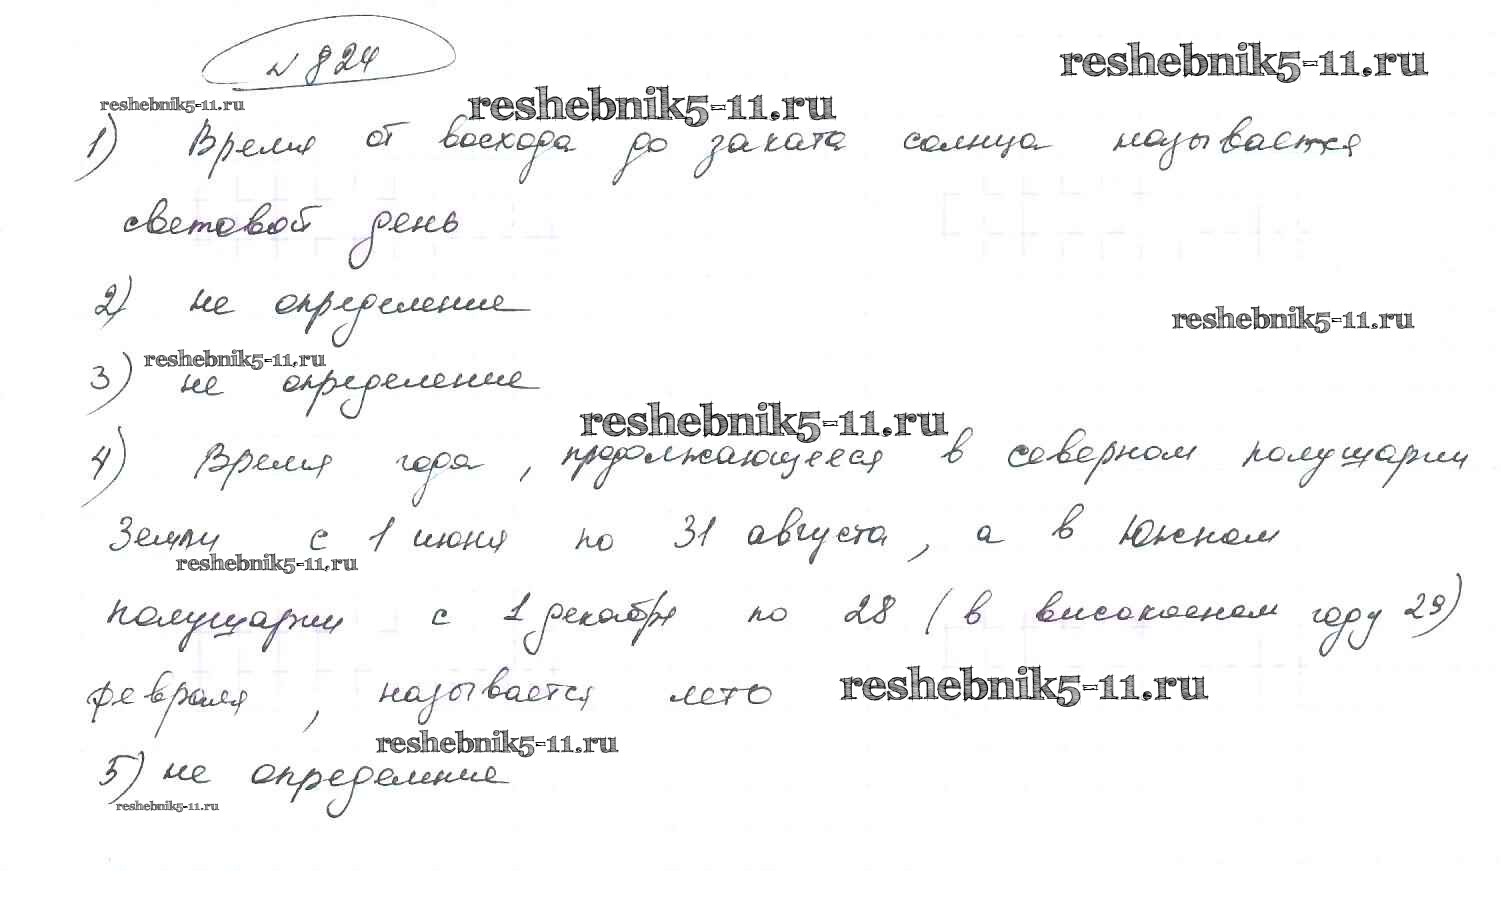 № 824
reshebnik5-11.ru
reshebnik5-11.ru
reshebnik5-11.ru
1) Время от восхода до заката солнца называется
световой день
2) не определение
reshebnik5-11.ru
reshebnik5-11.ru
3) не определение
reshebnik5-11.ru
4) Время года, продолжающееся в северном полушарии
Земли с 1 июня по 31 августа, а в Южном
reshebnik5-11.ru
полушарии с 1 декабря по 28 (в високосном году 29)
февраля, называется лето
reshebnik5-11.ru
reshebnik5-11.ru
5) не определение
reshebnik5-11.ru